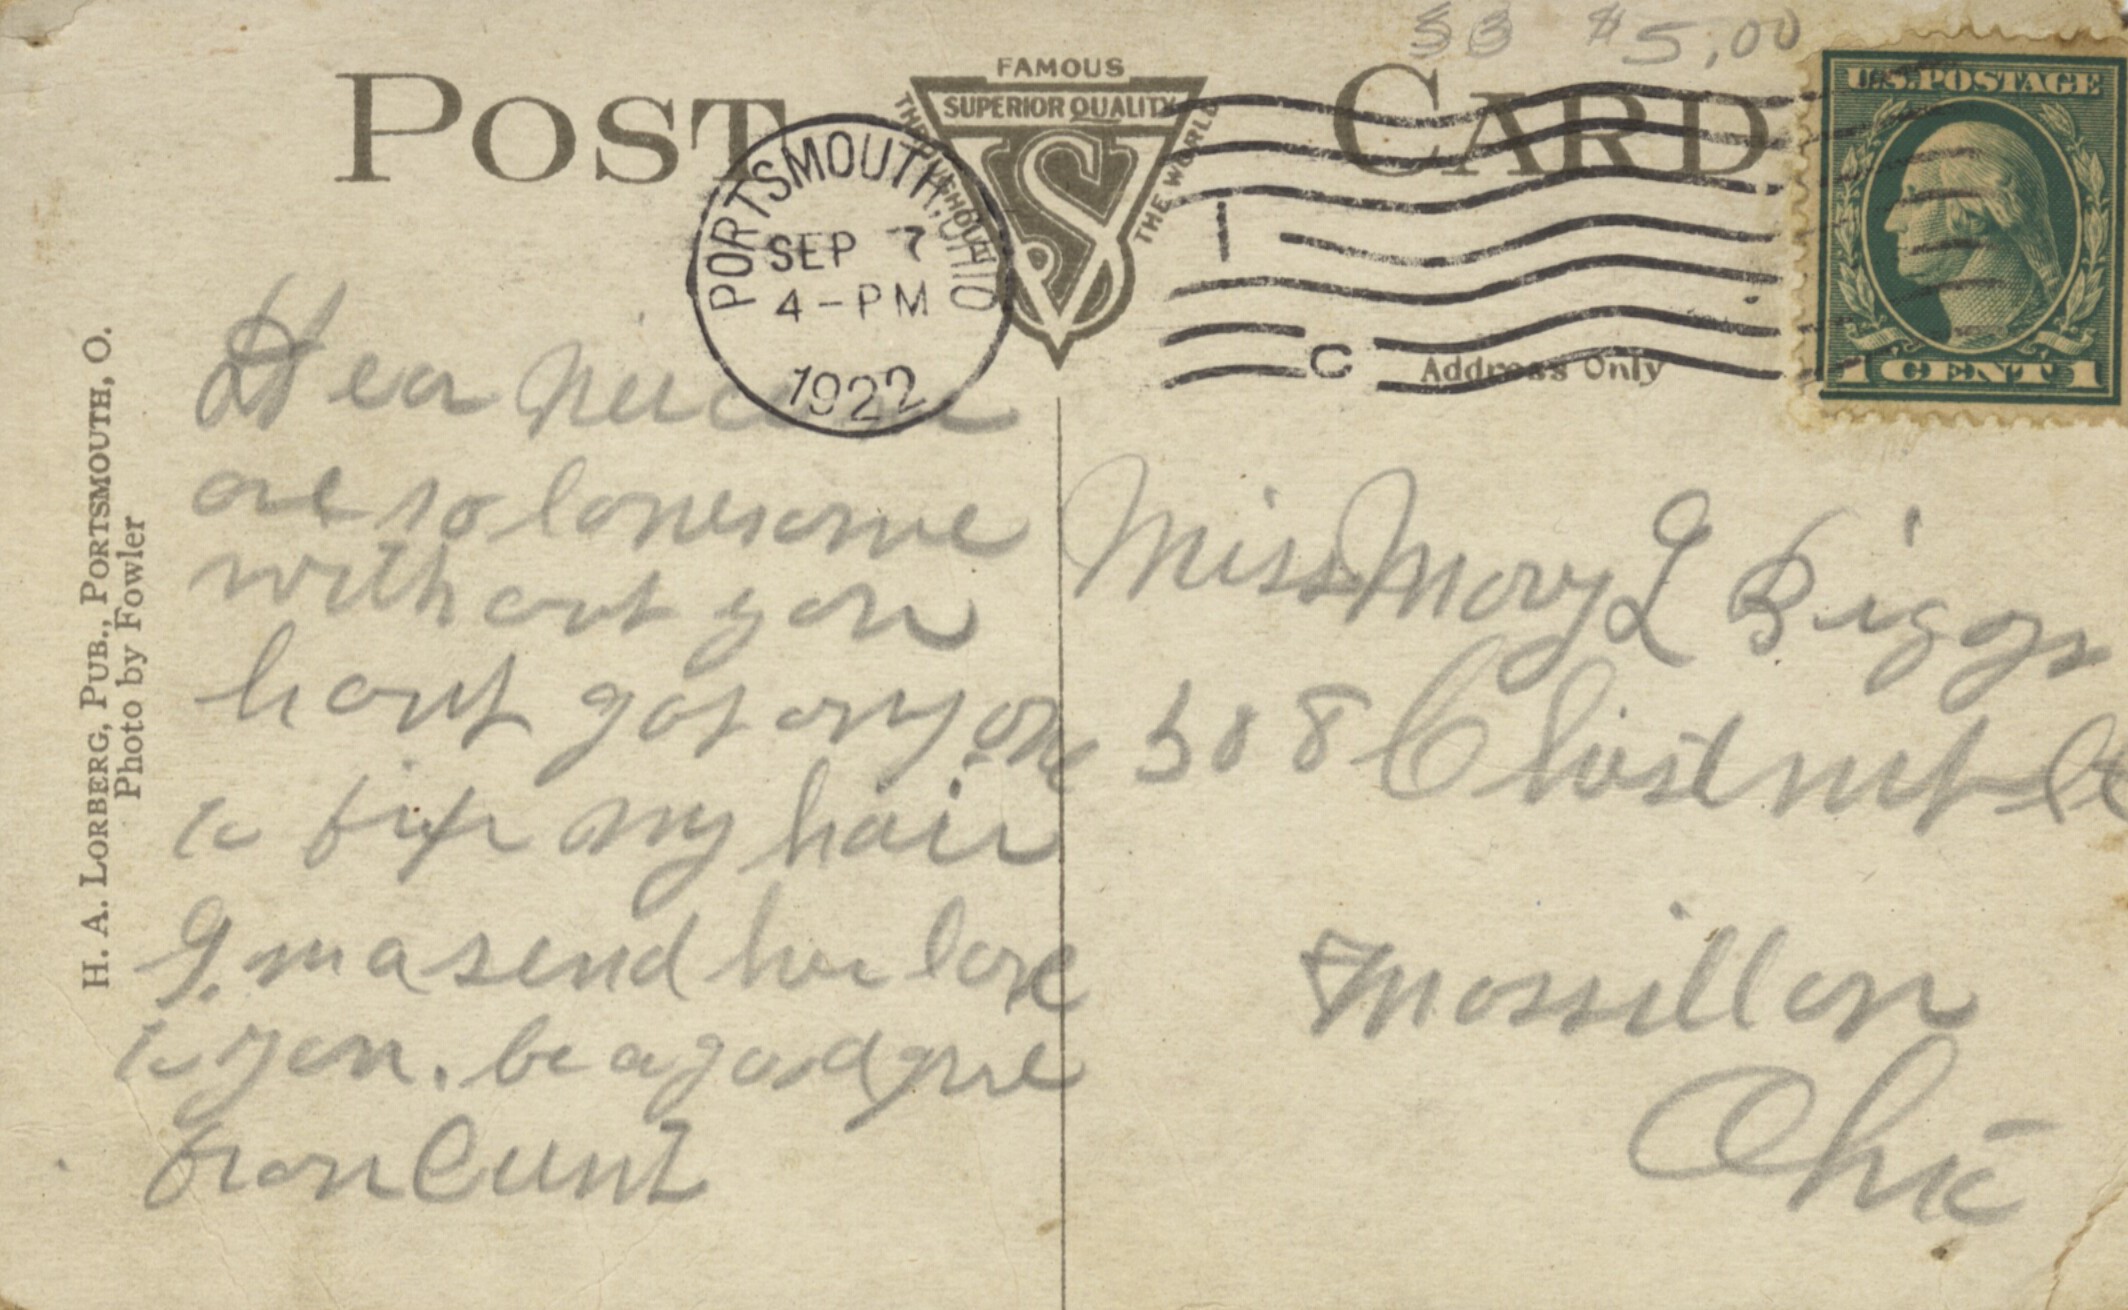 53 $5.00
POST CARD
FAMOUS
SUPERIOR QUALITY
THE WORLD
PORTSMOUTH, OHIO
SEP 7
4-PM
1922
1
C
U.S. POSTAGE
1 CENT 1
Address Only
H. A. LORBERG, PUB., PORTSMOUTH, O.
Photo by Fowler
Dear
are so lonesome
without you
hant got any one
to fix my hair
send love
to you. be a good
from
Miss Mary L Biggs
308 Chestnut St
Massillon
Ohio